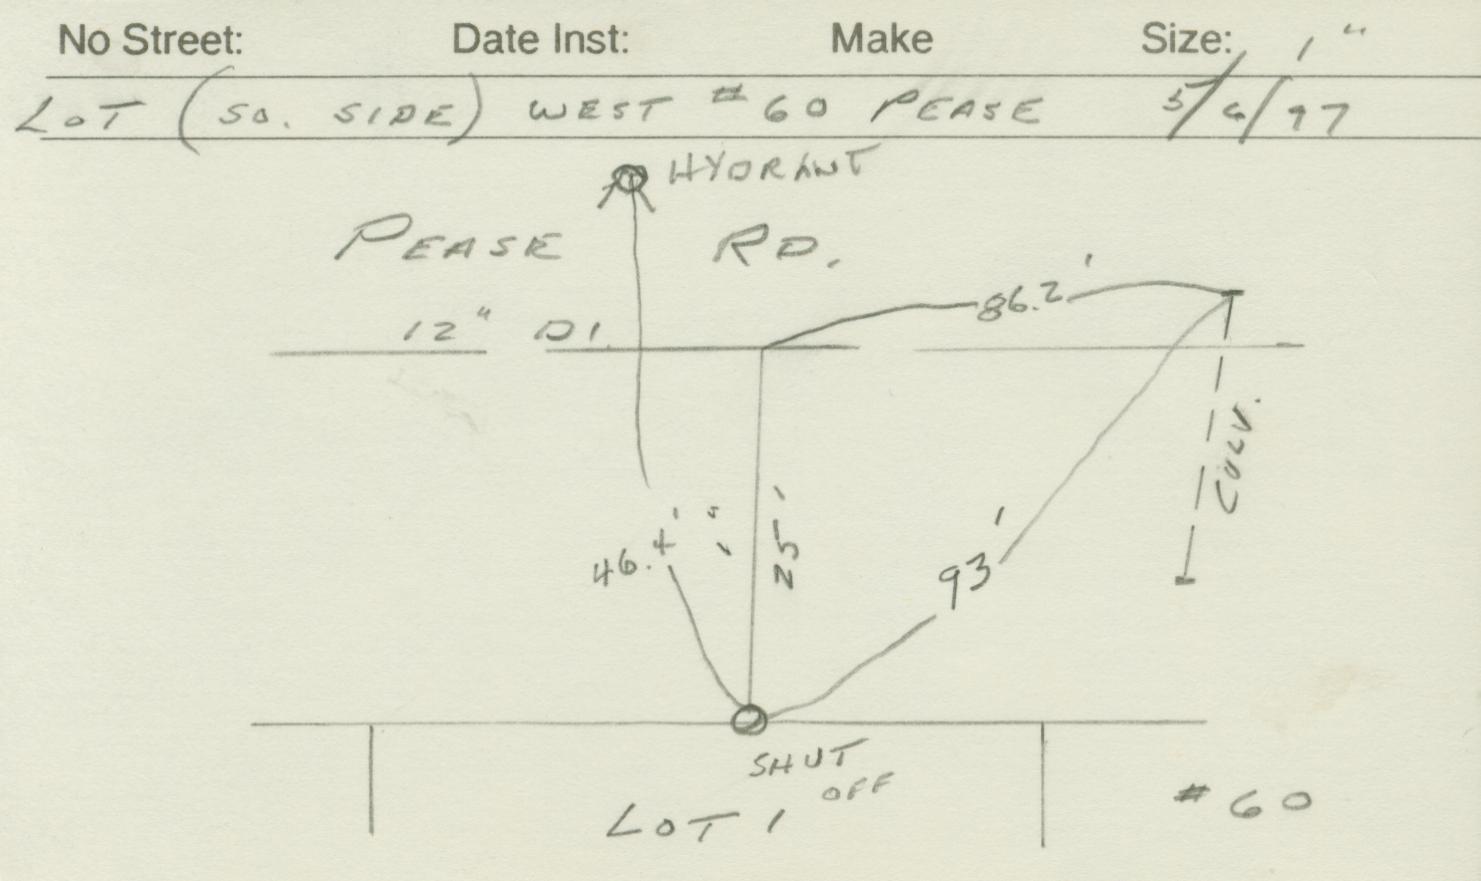 No Street: Date Inst: Make Size: 1"
LOT (SO. SIDE) WEST #60 PEASE 5/6/97
HYDRANT
PEASE RD.
86.2'
12" DI.
CULV.
46.4' 1" 25' 93'
SHUT
OFF
LOT 1 #60